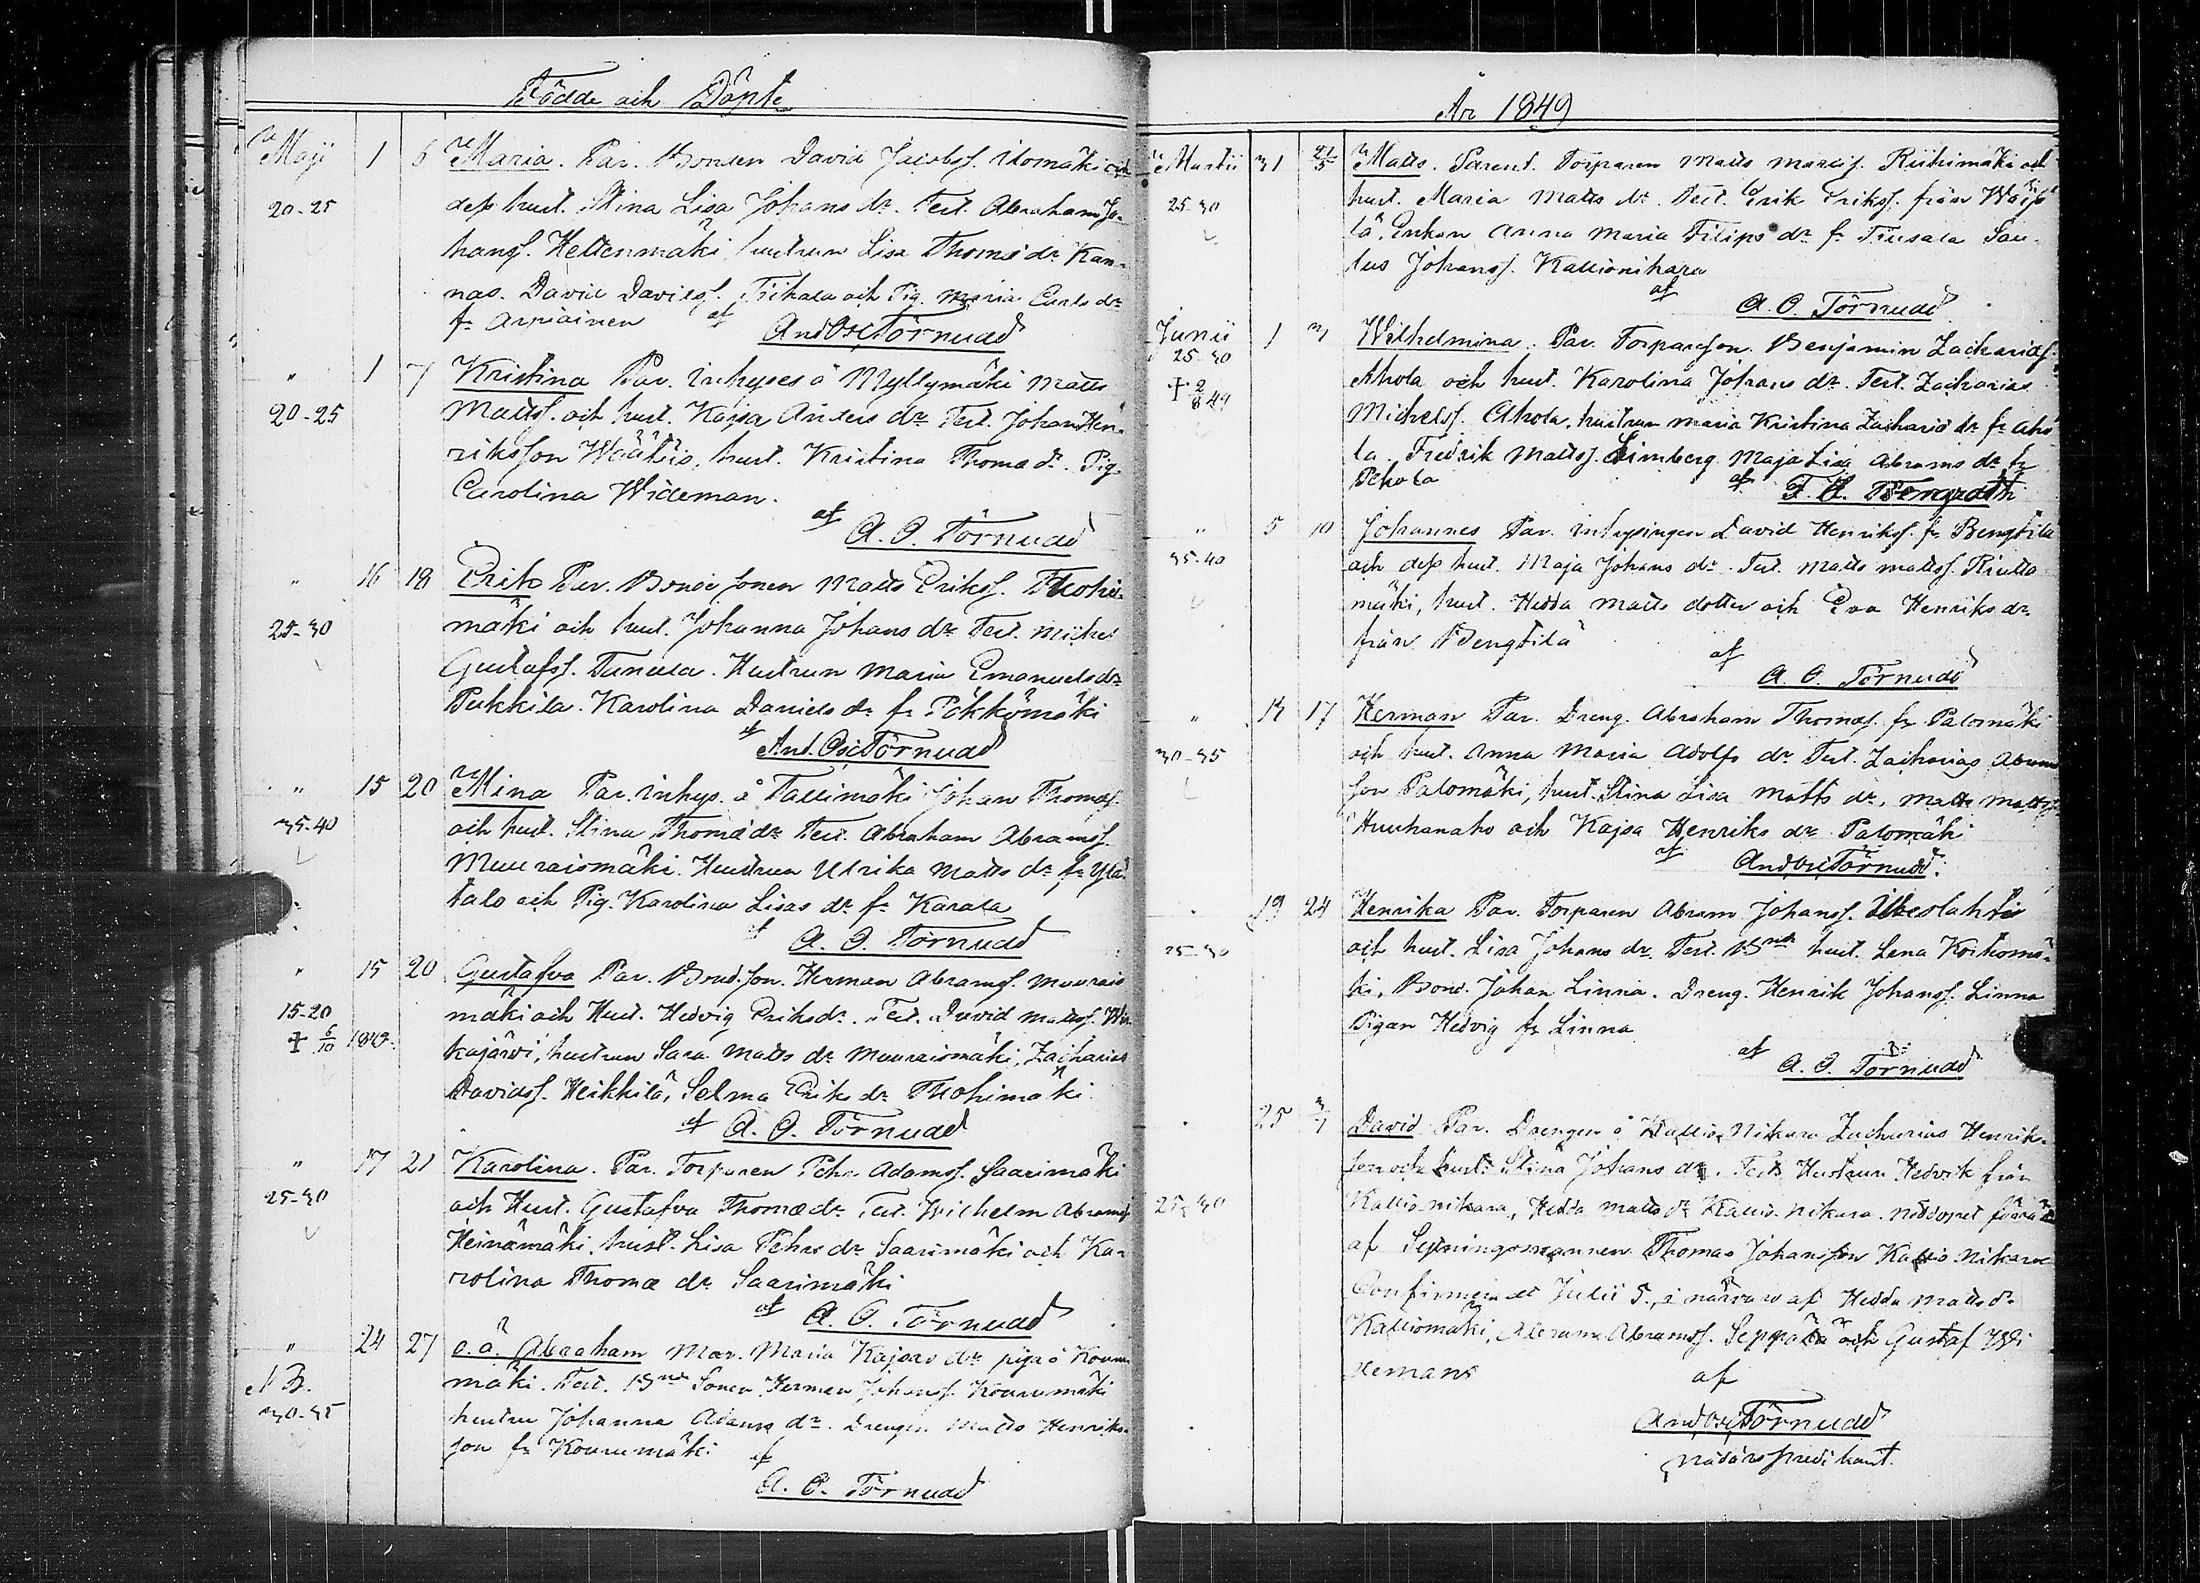 Födde och Döpte
Maji 1 6 Maria. Par. Bonden David Jacobss. Uomäki och
20-25 dess hust. Stina Lisa Johans dr. Test. Abraham Jo-
hanss. Hettenmäki, hustrun Lisa Thoms dr Kan-
nas. David Davidss. och Pig. Maria Carls dr
fr. Arpiainen af And Osc Törnudd
" 1 7 Kristina Par. Inhyses å Myllymäki Matts
20-25 Mattss. och hust. Kajsa Anders dr Test. Johan Hen-
riksson Wäätäis, hust. Kristina Thomæ dr. Pig.
Carolina Wideman.
af A. O. Törnudd
" 16 18 Erik Par. Bonde sonen Matts Erikss.
25-30 mäki och hust. Johanna Johans dr Test. Michel
Gustafss. Hustrun Maria Emanuels dr
Pukkila. Karolina Daniels dr fr Pökkömäki
af And. Osc Törnudd
" 15 20 Mina Par. inhys. å Tallimäki Johan Thomæs.
35-40 och hust. Stina Thomæ dr Test. Abraham Abramss.
Muuraismäki. Hustrun Ulrika Matts dr fr Ylä-
talo och Pig. Karolina Lisas dr fr Karala
af A. O. Törnudd
" 15 20 Gustafva Par. Bond. son. Herman Abramss. Muurais
15-20 mäki och Hust. Hedvig Eriks dr. Test. David Mattss. Wis-
+ 6/10 1849. kajärvi, hustrun Sara Matts dr Muuraismäki, Zacharias
Davidss. Heikkilä, Selma Eriks dr
af A. O. Törnudd
" 17 21 Karolina. Par. Torparen Pehr Adamss. Saarimäki
25-30 och Hust. Gustafva Thomæ dr Test. Wilhelm Abramss
Heinämäki, hust. Lisa Pehrs dr Saarimäki och Ka-
rolina Thomæ dr Saarimäki
af A. O. Törnudd
" 24 27 o.ä. Abraham Mor. Maria Kajsas dr piga å Kouru
N B. mäki. Test. Bnde Sonen Herman Johanss. Kourumäki
30-35 hustru Johanna Adams dr. Drengen Matts Henriks-
son fr Kourumäki af
A. O. Törnudd
År 1849
Martii 31 21/5 Matts. Parent. Torparen Matts Mattss. Riihimäki och
25-30 hust. Maria Matts dr. Test. Erik Erikss. från
lä, Enkan Anna Maria Filips dr fr
lus Johanss. Kallionikara
af A. O. Törnudd
Junii 1 3 Wilhelmina. Par. Torpareson. Benjamin Zachariæs.
25-30 Ahola och hust. Karolina Johans dr. Test. Zacharias
+ 2/8 49 Michelss. Ahola, hustrun Maria Kristina Zachariæ dr fr Aho
la. Fredrik Mattss. Limberg Maja Lisa Abrams dr fr
Pehola af
" 5 10 Johannes Par. inhysingen David Henrikss. fr Bengtilä
35-40 och dess hust. Maja Johans dr. Test. Matts Mattss.
mäki, hust. Hedda Matts dotter och Eva Henriks dr
från Bengtilä
af A. O. Törnudd
" 14 17 Herman Par. Dreng. Abraham Thomæs. fr Palomäki
30-35 och hust. Anna Maria Adolfs dr Test. Zacharias Abram
son Palomäki, hust. Stina Lisa Matts dr. Matts Mattss
Huuhanaho och Kajsa Henriks dr Palomäki
af And Osc Törnudd.
19 24 Henrika Par. Torparen Abram Johanss. Ilkeslahti
25-30 och hust. Lisa Johans dr. Test. Bnde hust. Lena Koskomä-
ki, Bond. Johan Linna. Dreng. Henrik Johanss. Linna
Pigan Hedvig fr Linna
af A. O. Törnudd
25 3/7 David Par. Drengen å Kallio Nikara Zacharias Henrik-
son och hust. Stina Johans dr. Test. Hustrun Hedvik från
25-30 Kallio nikara, Hedda Matts dr Kallio nikara. Nöddopet förrä
af Sexningsmannen Thomas Johansson Kallio nikara
Confirmeradt Julii 5, i närvaro af Hedda Matts dr
Kalliomäki, Abram Abramss. Seppälä och Gustaf Wi
demans af
And Osc Törnudd
nådårspredikant.